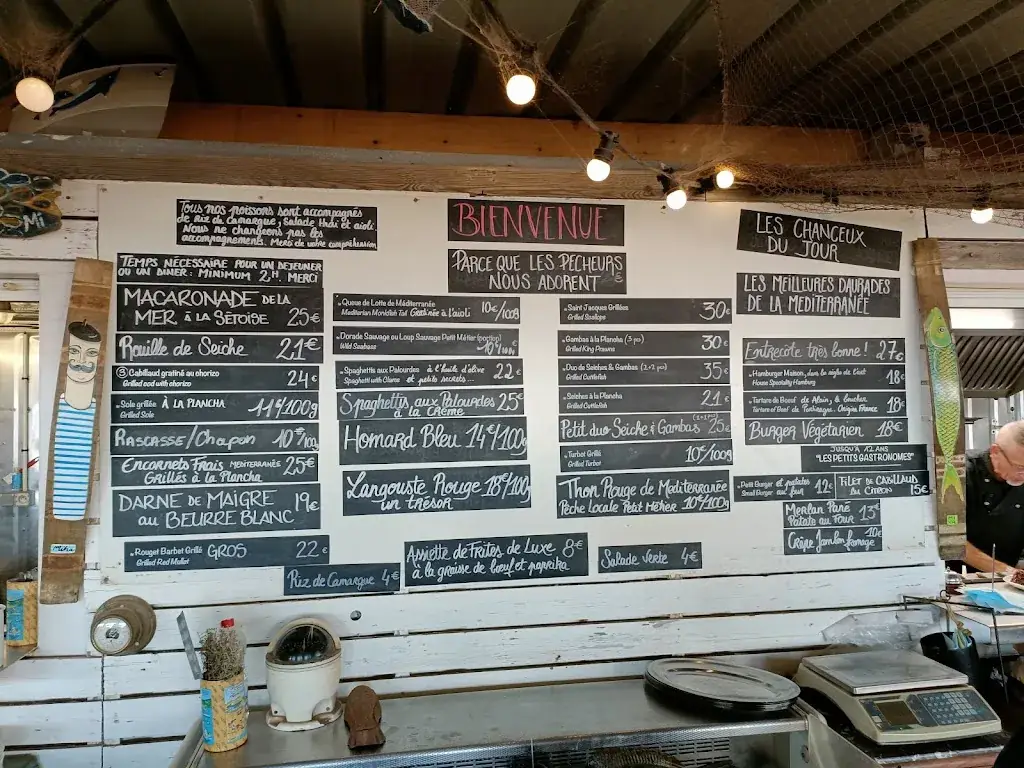 Tous nos poissons sont accompagnés
de Riz de Camargue, Salade Thaï et aïoli
Nous ne changeons pas les
accompagnements. Merci de votre compréhension
TEMPS NÉCESSAIRE POUR UN DEJEUNER
OU UN DINER : MINIMUM 2H. MERCI
MACARONADE DE LA
MER À LA SÈTOISE 25€
Rouille de Seiche 21€
Cabillaud gratiné au chorizo 24€
Grilled cod with chorizo
Sole grillée À LA PLANCHA 11€/100g
Grilled Sole
RASCASSE/Chapon 10€/100g
ENCORNETS FRAIS MEDITERRANÉE 25€
GRILLÉS À LA PLANCHA
DARNE DE MAIGRE 19€
AU BEURRE BLANC
Rouget Barbet Grillé GROS 22€
Grilled Red Mullet
BIENVENUE
PARCE QUE LES PÊCHEURS
NOUS ADORENT
Queue de Lotte de Méditerranée 10€/100g
Mediterian Monkfish Tail Gratinée à l'aïoli
Dorade Sauvage ou Loup Sauvage Petit Métier (portion)
Wild Seabass 10€/100g
Spaghettis aux Palourdes à l'huile d'olive 22€
Spaghetti with Clams et petits secrets...
Spaghettis aux Palourdes 25€
à la crème
Homard Bleu 14€/100g
Langouste Rouge 18€/100g
UN TRÉSOR
Saint Jacques Grillées 30€
Grilled Scallops
Gambas à la Plancha (5 pcs) 30€
Grilled King Prawns
Duo de Seiches & Gambas (2+2 pcs) 35€
Grilled Cuttlefish
Seiches à la Plancha 21€
Grilled Cuttlefish
Petit duo Seiche & Gambas 25€
Turbot Grillé 10€/100g
Grilled Turbot
Thon Rouge de Mediterranée
Pêche Locale Petit Métier 10€/100g
LES CHANCEUX
DU JOUR
LES MEILLEURES DAURADES
DE LA MEDITERRANÉE
Entrecôte très bonne ! 27€
Hamburger Maison, dans le style de l'est 18€
House Speciality Hamburg
Tartare de Boeuf de Alain, le boucher 18€
Tartare of Beef Origine France
Burger Végétarien 18€
JUSQU'À 12 ANS
"LES PETITS GASTRONOMES"
Petit Burger et patates 12€
Small Burger au four
FILET DE CABILLAUD
AU CITRON 15€
Merlan Pané 13€
Patate au Four
Crêpe Jambon fromage 10€
Riz de Camargue 4€
Assiette de Frites de Luxe 8€
à la graisse de boeuf et paprika
Salade Verte 4€
Mi